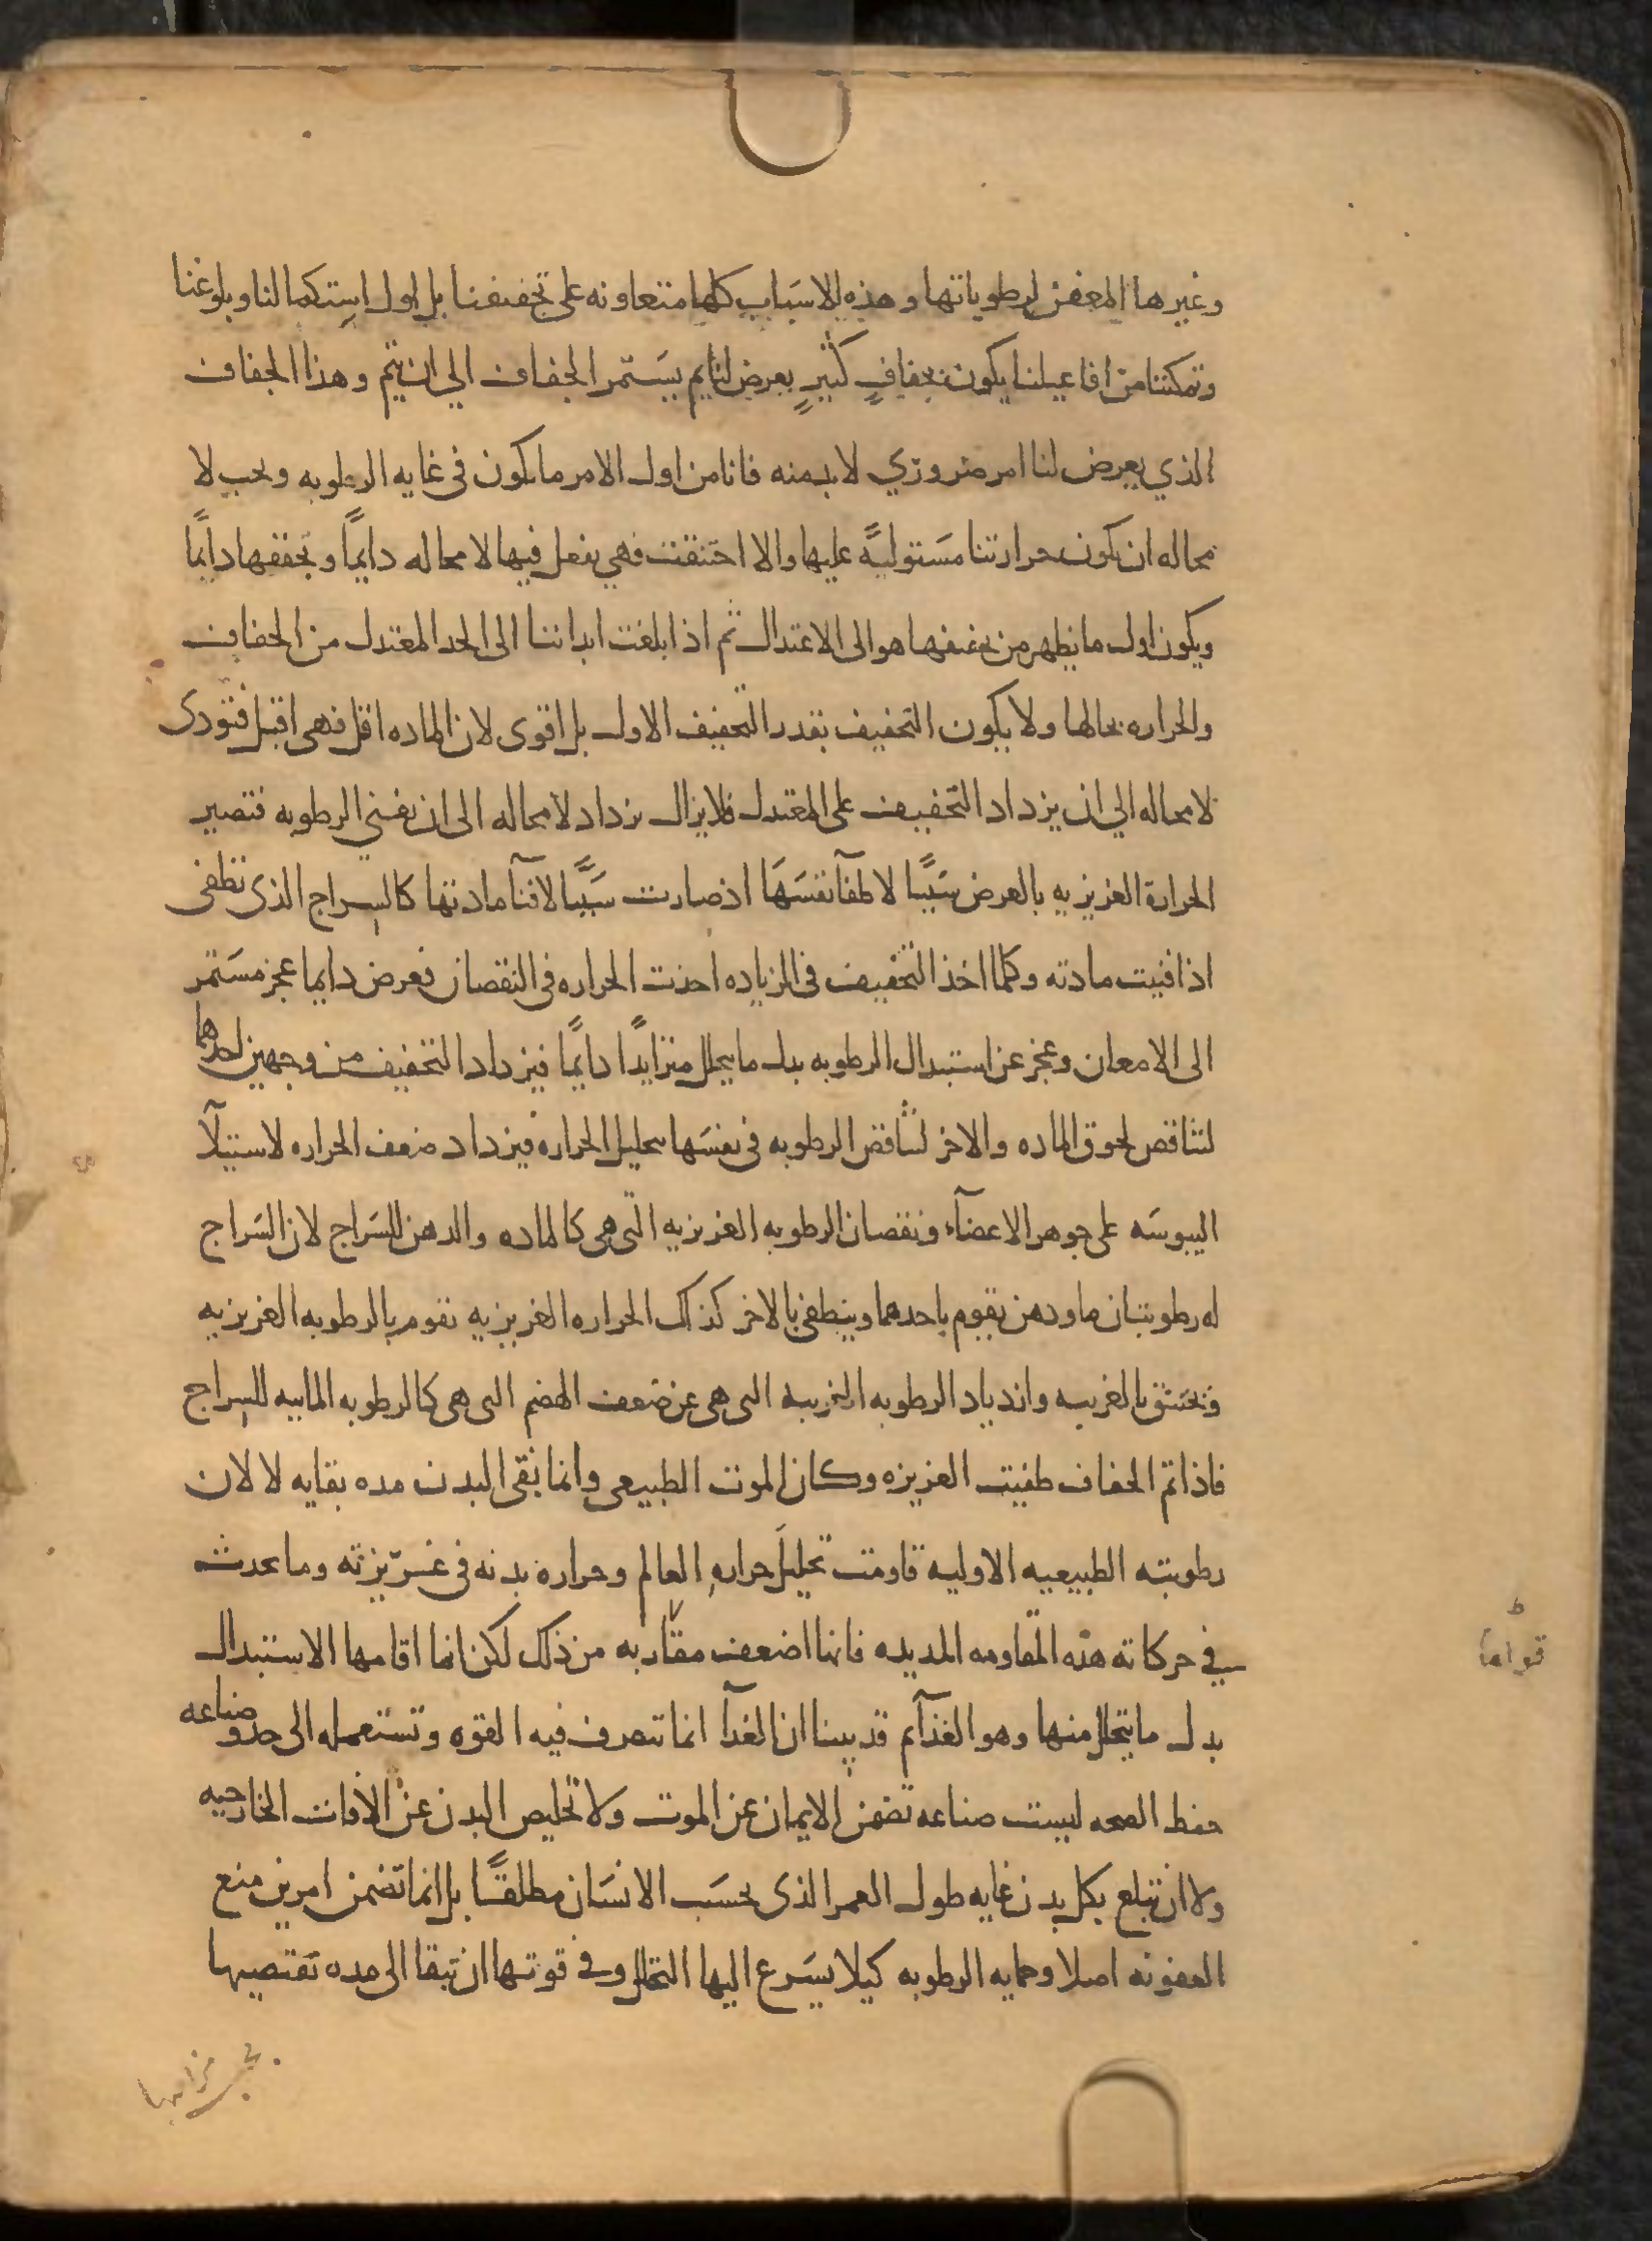 وغيرها المعفن لرطوباتها وهذه الاسباب كلها متعاونه على تجفيفنا بل اول استكمالنا وبلوغنا
وتمكننا من افاعيلنا يكون بجفافٍ كثيرٍ يعرض لنا ثم يستمر الجفاف الي ان يتم وهذا الجفاف
الذي يعرض لنا امر ضروري لا بد منه فانا من اول الامر ما نكون في غايه الرطوبه ويجب لا
محاله ان يكون حرارتنا مستوليةً عليها والا احتنقت فهي يفعل فيها لا محاله دايمًا وتجففها دايمًا
ويكون اول ما يظهر من تجفيفها هو الى الاعتدال ثم اذا بلغت ابداننا الى الحد المعتدل من الجفاف
والحراره بحالها ولا يكون التجفيف بقدر التجفيف الاول بل اقوى لان الماده اقل فهى اقبل فتودى
لا محاله الي ان يزداد التجفيف على المعتدل فلا يزال يزداد لا محاله الى ان يفنى الرطوبه فتصير
الحرارة الغريزيه بالعرض سببًا لاطفآ نفسها اذ صارت سببًا لافنآ مادتها كالسراج الذى تطفى
اذا فنيت مادته وكلما اخذ التجفيف فى الزياده اخذت الحراره فى النقصان فعرض دايما عجز مستمر
الى الامعان وعجز عن استبدال الرطوبه بدل ما يتحلل متزايدًا دايمًا فيزداد التجفيف من وجهين احدهما
لتناقص لحوق الماده والاخر لتناقض الرطوبه فى نفسها بتحليل الحراره فيزداد ضعف الحراره لاستيلآ
اليبوسه على جوهر الاعضآء ونقصان الرطوبه الغريزيه التى هى كالماده والدهن للسراج لان السراج
له رطوبتان ماء ودهن يقوم باحدهما وينطفى بالاخر كذلك الحراره الغريزيه تقوم بالرطوبه الغريزيه
وتختنق بالغريبه وازدياد الرطوبه الغريبه التى هى عن ضعف الهضم التى هى كالرطوبه الماييه للسراج
فاذا تم الجفاف طفيت الغريزه وكان الموت الطبيعى وانما بقى البدن مده بقايه لا لان
رطوبته الطبيعيه الاوليه قاومت تحليل حراره العالم وحراره بدنه فى غريزته وما يحدث
في حركاته هذه المقاومه المديده فانها اضعف مقاربه من ذلك لكن انما اقامها الاستبدال
بدل ما يتحلل منها وهو الغذآ ثم قد بينا ان الغذآ انما تتصرف فيه القوه وتستعمله الى حد وصناعه
حفظ الصحه ليست صناعه تضمن الايمان عن الموت ولا تخليص البدن عن الافات الخارجيه
ولا ان تبلغ بكل بدن غايه طول العمر الذى بحسب الانسان مطلقًا بل انما تضمن امرين منع
العفونه اصلا وحمايه الرطوبه كيلا يسرع اليها التحلل وفى قوتها ان تبقا الى مده تقتضيها
ط
قواما
بحسب مزاجها